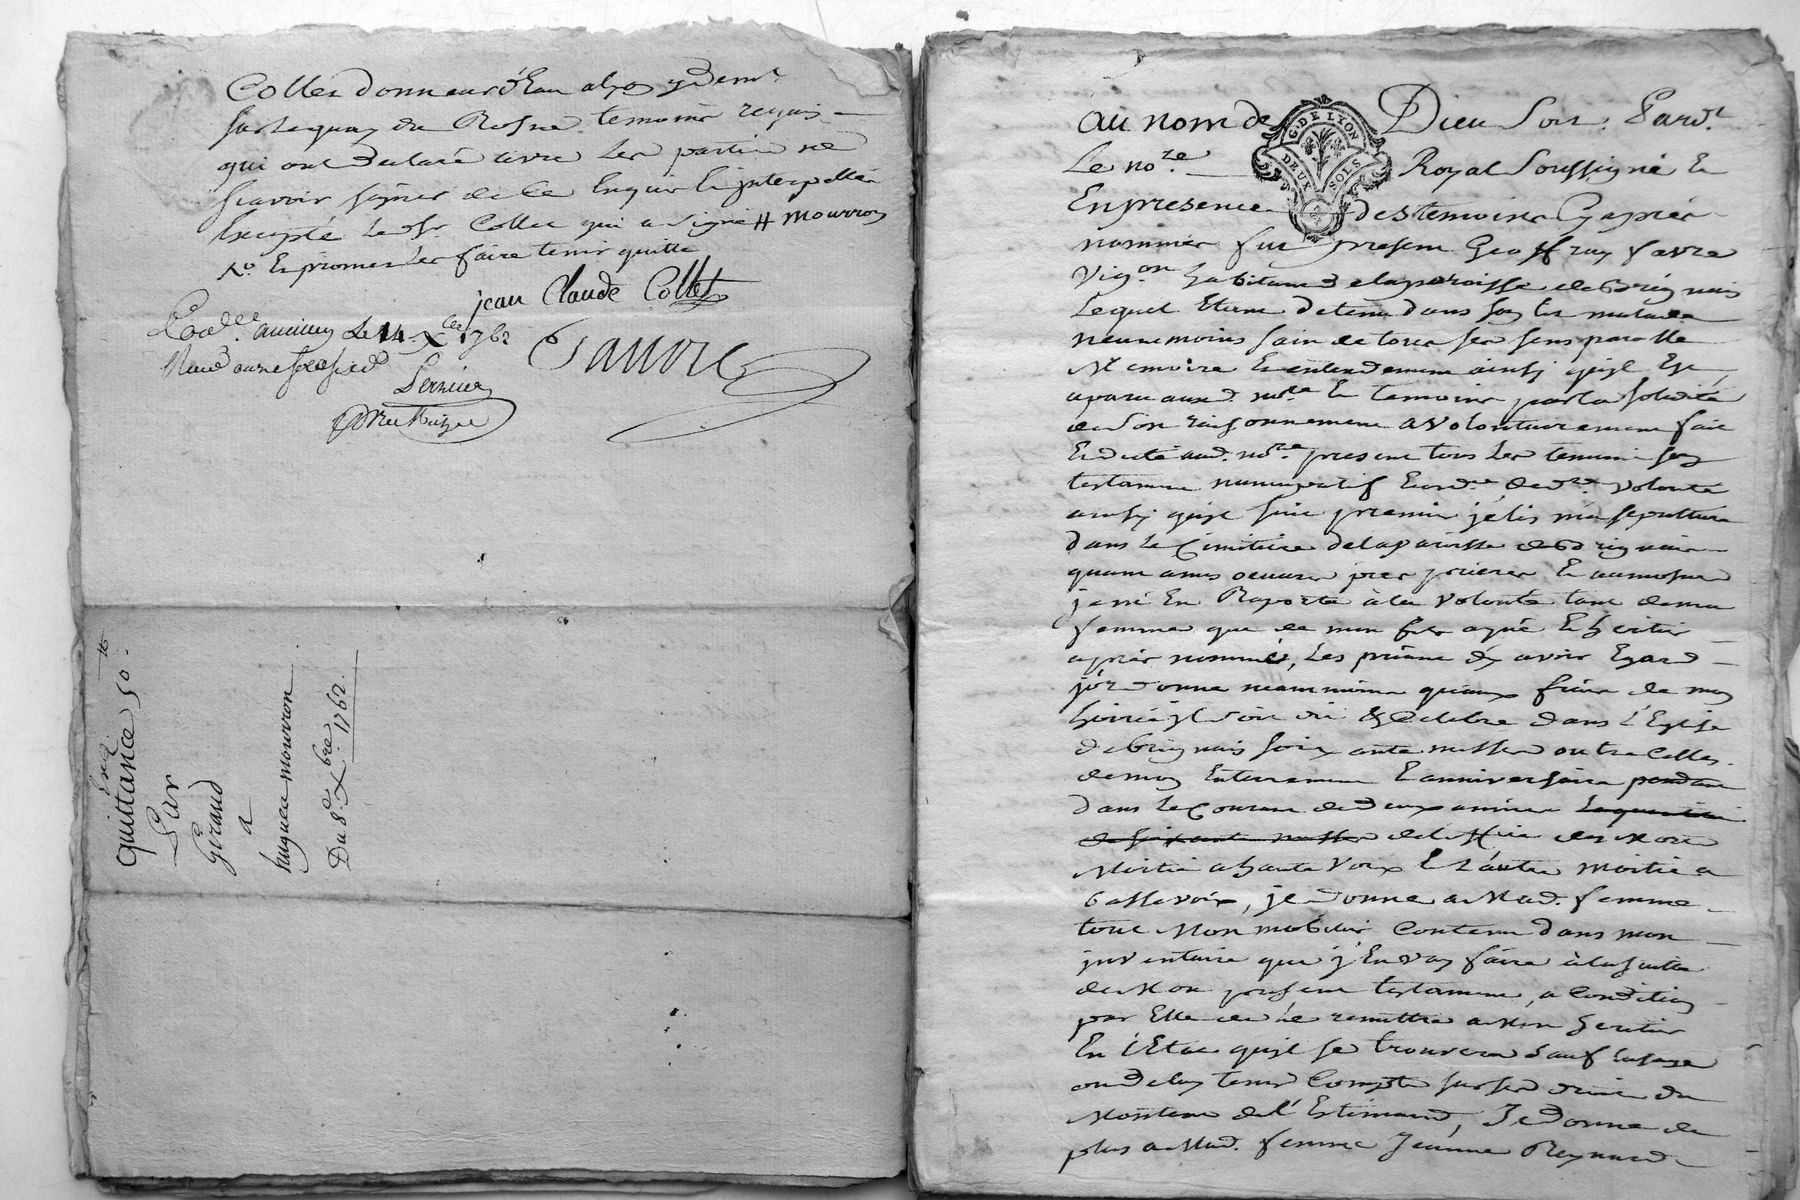 Collet donneur d'Eau
sur le quay du Rosne temoins requis
qui ont declaré avec les parties ne
scavoir signer de ce Enquis & interpellés
Excepté le Sr. Collet qui a signé # mourron
Et promet les faire tenir quitte
jean Claude Collet
le 14 Xbre 1762
quittance 50 tt
Par
Giraud
a
hugues mourron
Du 8e Xbre 1762.
G. DE LYON
DEUX SOLS
au nom de Dieu Soit. Pardt
Le nore Royal Soussigné Et
En presence des temoins Cy apres
nommés fut present Geoffray favre
Vigon habitant de la paroisse de Brignais
Lequel Etant detenu dans son lit malade
neanmoins sain de tous ses sens parolle
Memoire Et entendement ainsy qu'il Est
aparu aud. nore Et temoins par la solidité
de son raisonnement a volontairement fait
Et dicté aud. nore present tous les temoins son
testament nuncupatif Et ordre de dre volonté
ainsy qu'il suit premier j'élis ma sepulture
dans le Cimitiere de la paroisse de Brignais
quant a mes oeuvres pies prieres Et aumosnes
je m'En Raporte à la volonté tant de ma
femme que de mon fils ayné Et heritier
apres nommé, Les priant d'y avoir Egard
j'ordonne neanmoins qu'aux frais de mon
hoirie il soit dit & Celebré dans l'Eglise
de brignais soixante messes outre Celles
de mon Enterrement & anniversaire pendant
dans le Courant de deux années Laquantité
de soixante messes de des Morts
Moitié a haute Voix Et L'autre moitié a
basse voix, je donne a Mad. femme
tout Mon mobilier Contenu dans mon
inventaire que j'En vay faire à la suitte
de Mon present testament, a Condition
par Elle de le remettre a Mon heritier
En l'Etat qu'il se trouvera sauf lusage
ou de luy tenir Compte sur ses droits du
Montant de l'Estimaon, Je donne de
plus a Mad. femme Jeanne Reynard